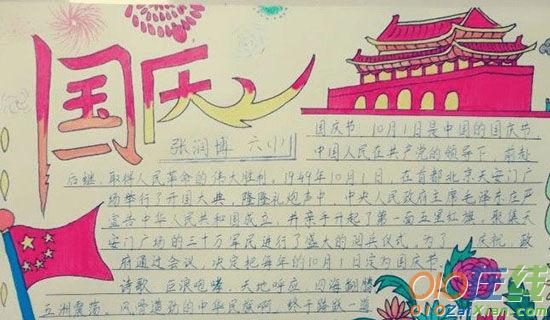 国庆
张润博 六(1)
国庆节 10月1日是中国的国庆节,
中国人民在共产党的领导下,前赴
后继,取得人民革命的伟大胜利,1949年10月1日,在首都北京天安门广
场举行了开国大典,隆隆礼炮声中,中央人民政府主席毛泽东庄严
宣告中华人民共和国成立,并亲手升起了第一面五星红旗,聚集天
安门广场的三十万军民进行了盛大的阅兵仪式,为了 庆祝,政
府通过会议 决定把每年的10月1日定为国庆节
诗歌 巨浪咆哮,天地呼应 四海翻腾
五洲震荡,风雪造的中华民族啊 终于踏
OIO在线
OioZaiXian.com